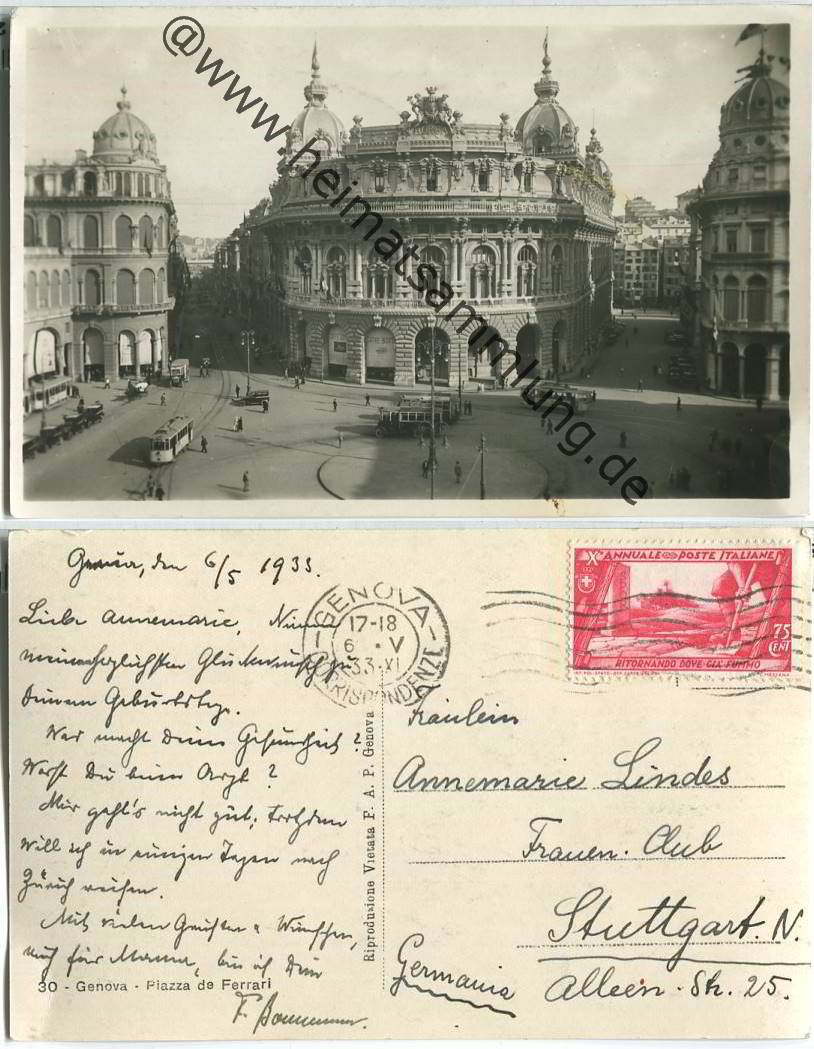 @www.heimatsammlung.de
Genua, den 6/5 1933.
Liebe Annemarie, Nimm
meine herzlichsten Glückwünsche zu
deinem Geburtstage.
Was macht Deine Gesundheit?
Warst Du beim Arzt?
Mir geht's nicht gut; trotzdem
will ich in einigen Tagen nach
Zürich reisen.
Mit vielen Grüßen & Wünschen,
auch für Mama, bin ich Dein
F.
30 - Genova - Piazza de Ferrari
Riproduzione Vietata F. A. P. Genova
GENOVA
17-18
6 · V
33·XI
CORRISPONDENZE
X ANNUALE POSTE ITALIANE
75
CENT
RITORNANDO DOVE GIÀ FUMMO
Fräulein
Annemarie Lindes
Frauen-Club
Stuttgart. N.
Germania
Alleen-Str. 25.